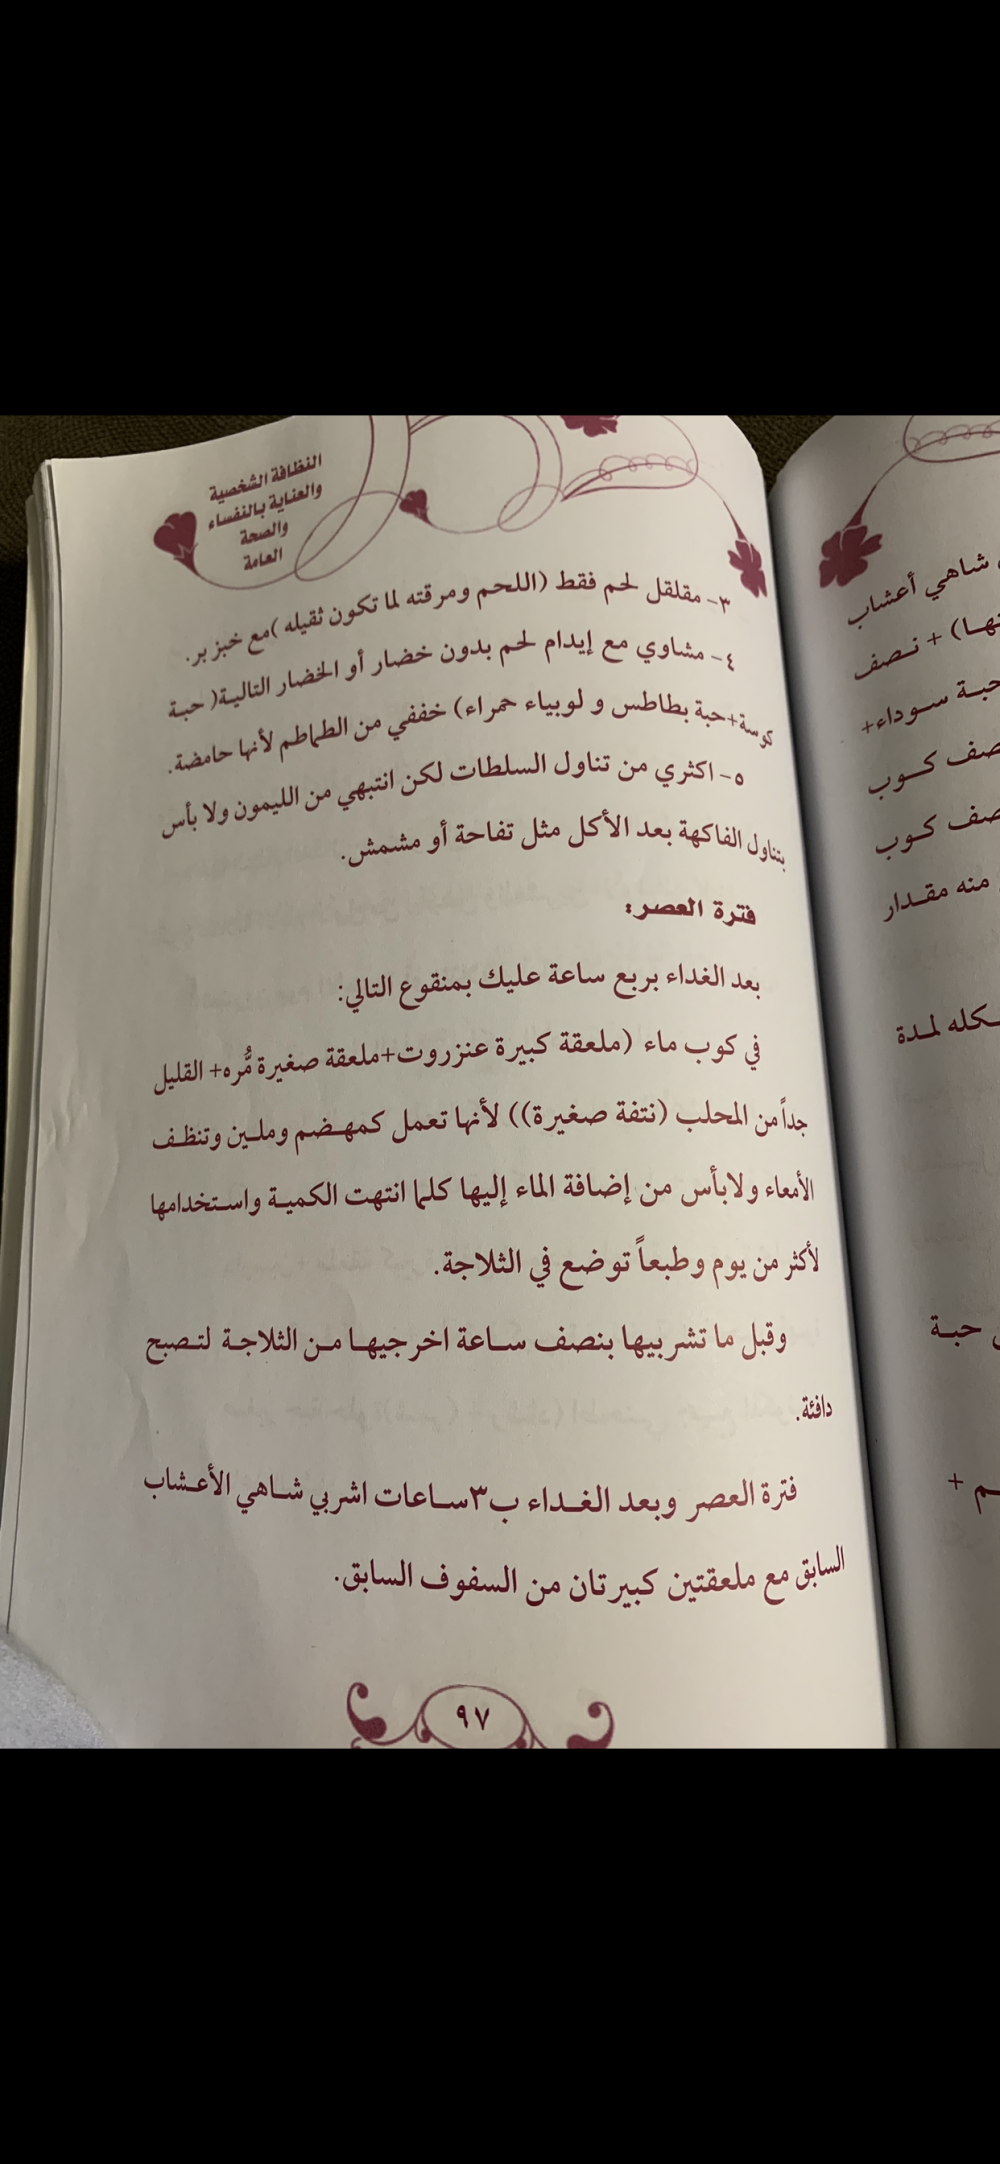 النظافة الشخصية
والعناية بالنفساء
والصحة
العامة
٣- مقلقل لحم فقط (اللحم ومرقته لما تكون ثقيله )مع خبز بر.
٤- مشاوي مع إيدام لحم بدون خضار أو الخضار التالية( حبة
كوسة+حبة بطاطس و لوبياء حمراء) خففي من الطماطم لأنها حامضة.
٥- اكثري من تناول السلطات لكن انتبهي من الليمون ولا بأس
بتناول الفاكهة بعد الأكل مثل تفاحة أو مشمش.
فترة العصر:
بعد الغداء بربع ساعة عليك بمنقوع التالي:
في كوب ماء (ملعقة كبيرة عنزروت+ملعقة صغيرة مُّره+ القليل
جداً من المحلب (نتفة صغيرة)) لأنها تعمل كمهضم وملين وتنظف
الأمعاء ولابأس من إضافة الماء إليها كلما انتهت الكمية واستخدامها
لأكثر من يوم وطبعاً توضع في الثلاجة.
وقبل ما تشربيها بنصف ساعة اخرجيها من الثلاجة لتصبح
دافئة.
فترة العصر وبعد الغداء ب٣ساعات اشربي شاهي الأعشاب
السابق مع ملعقتين كبيرتان من السفوف السابق.
٩٧
شاهي أعشاب
+ نصف
حبة سوداء+
كوب
كوب
منه مقدار
لمدة
حبة
+